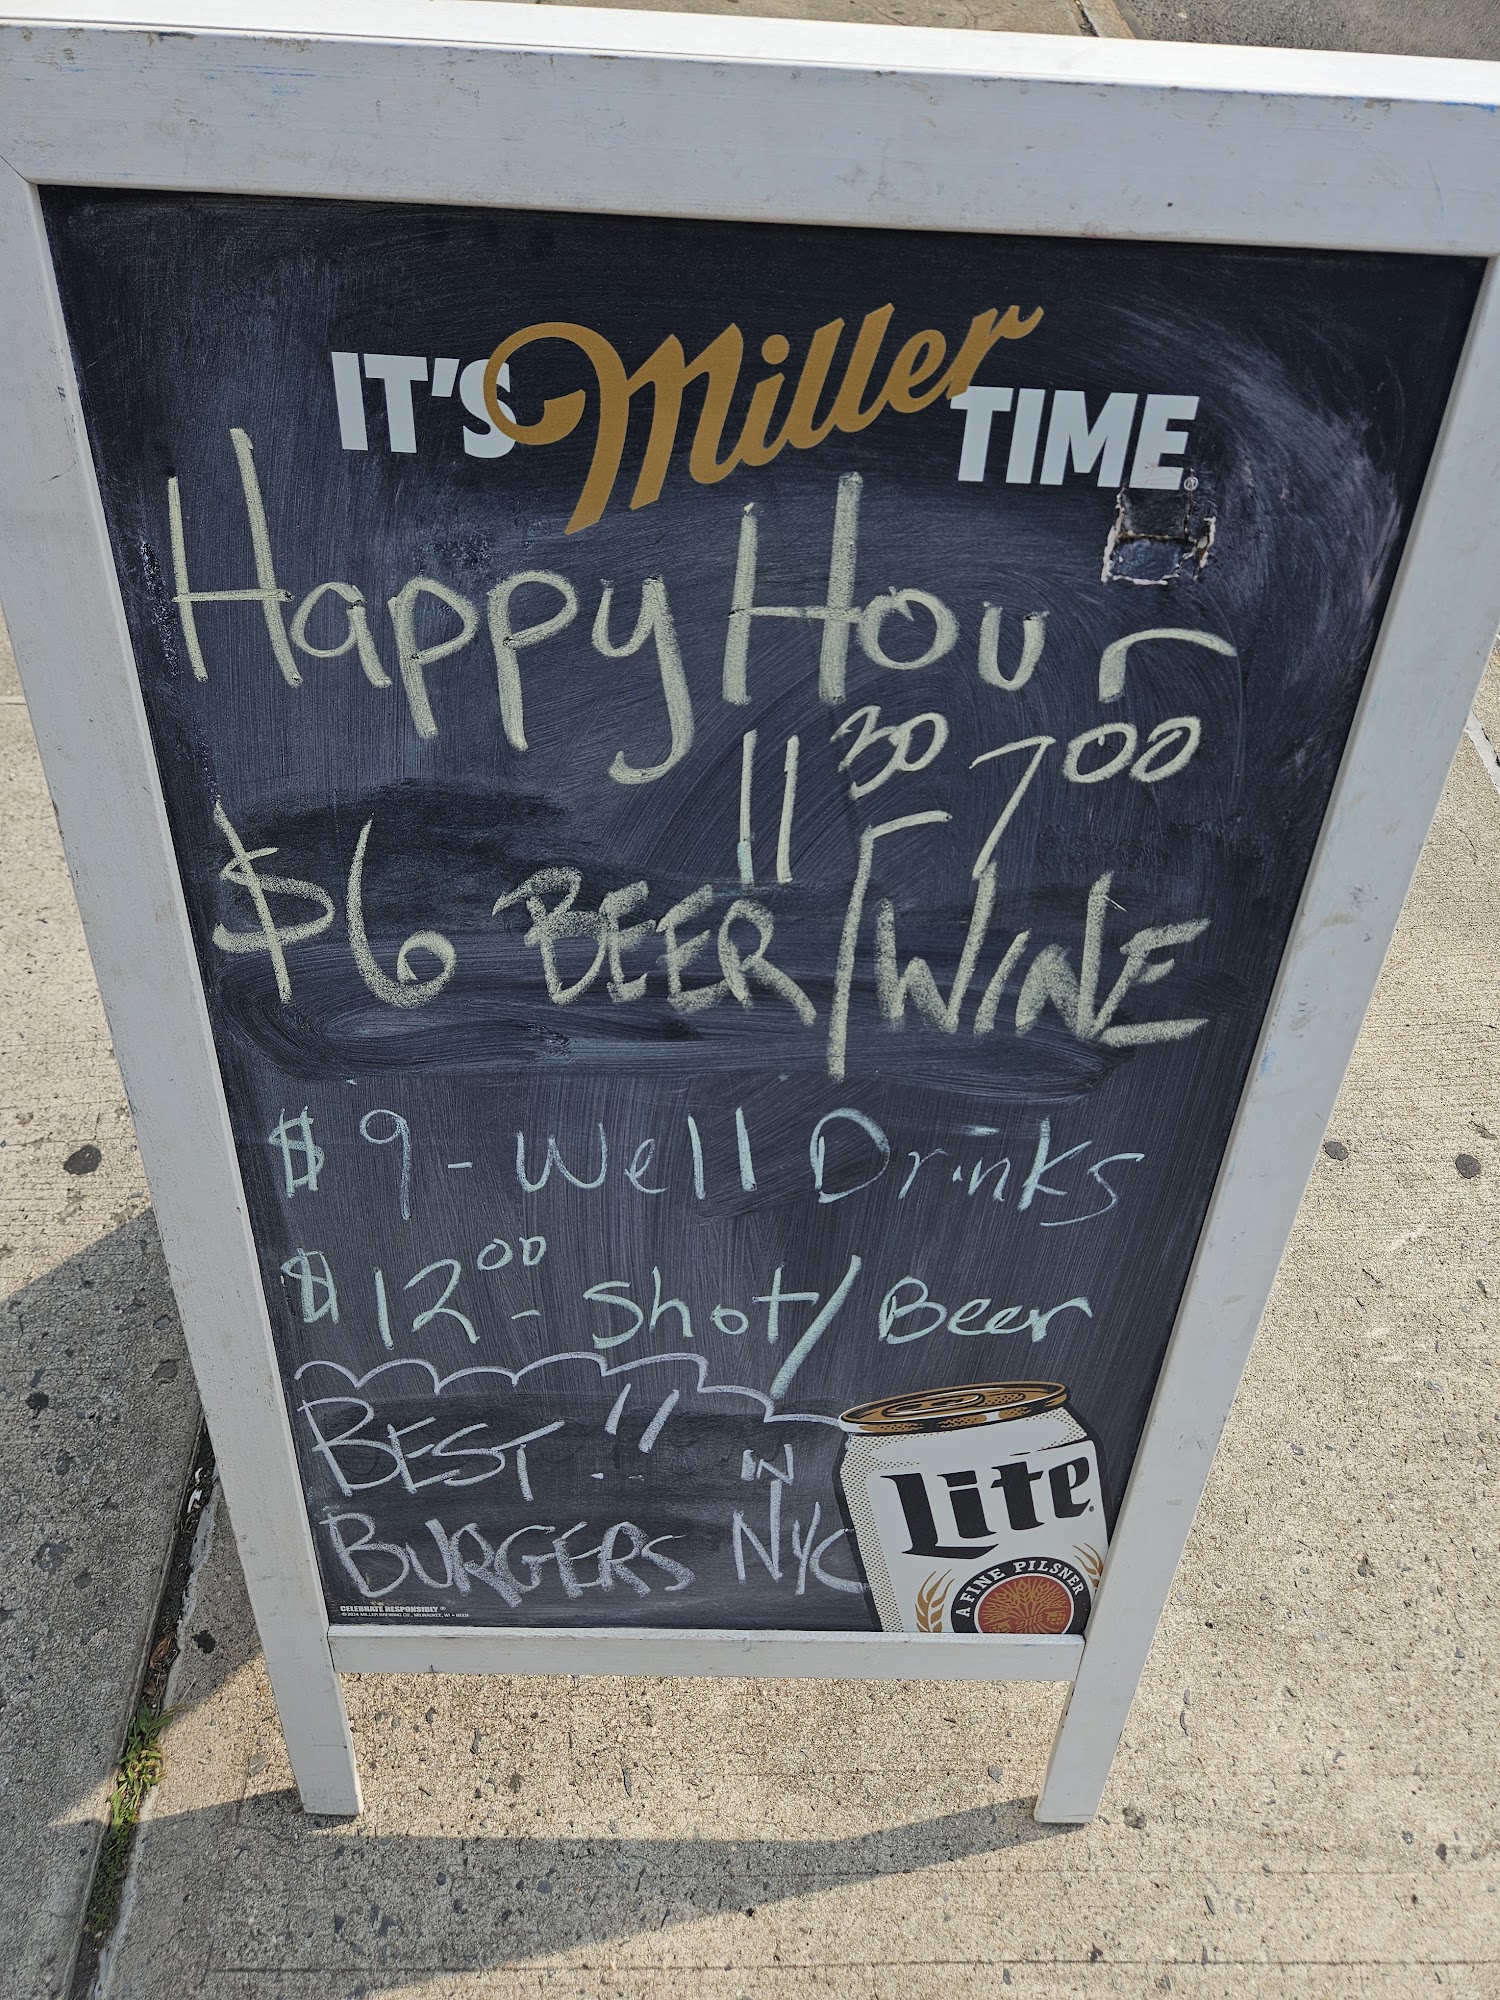 IT'S Miller TIME®
Happy Hour
11 30 - 7 00
$6 BEER/WINE
$9 - Well Drinks
$12 00 - Shot/Beer
BEST!!
BURGERS IN NYC
Lite
A FINE PILSNER
CELEBRATE RESPONSIBLY®
© 2024 MILLER BREWING CO., MILWAUKEE, WI • BEER